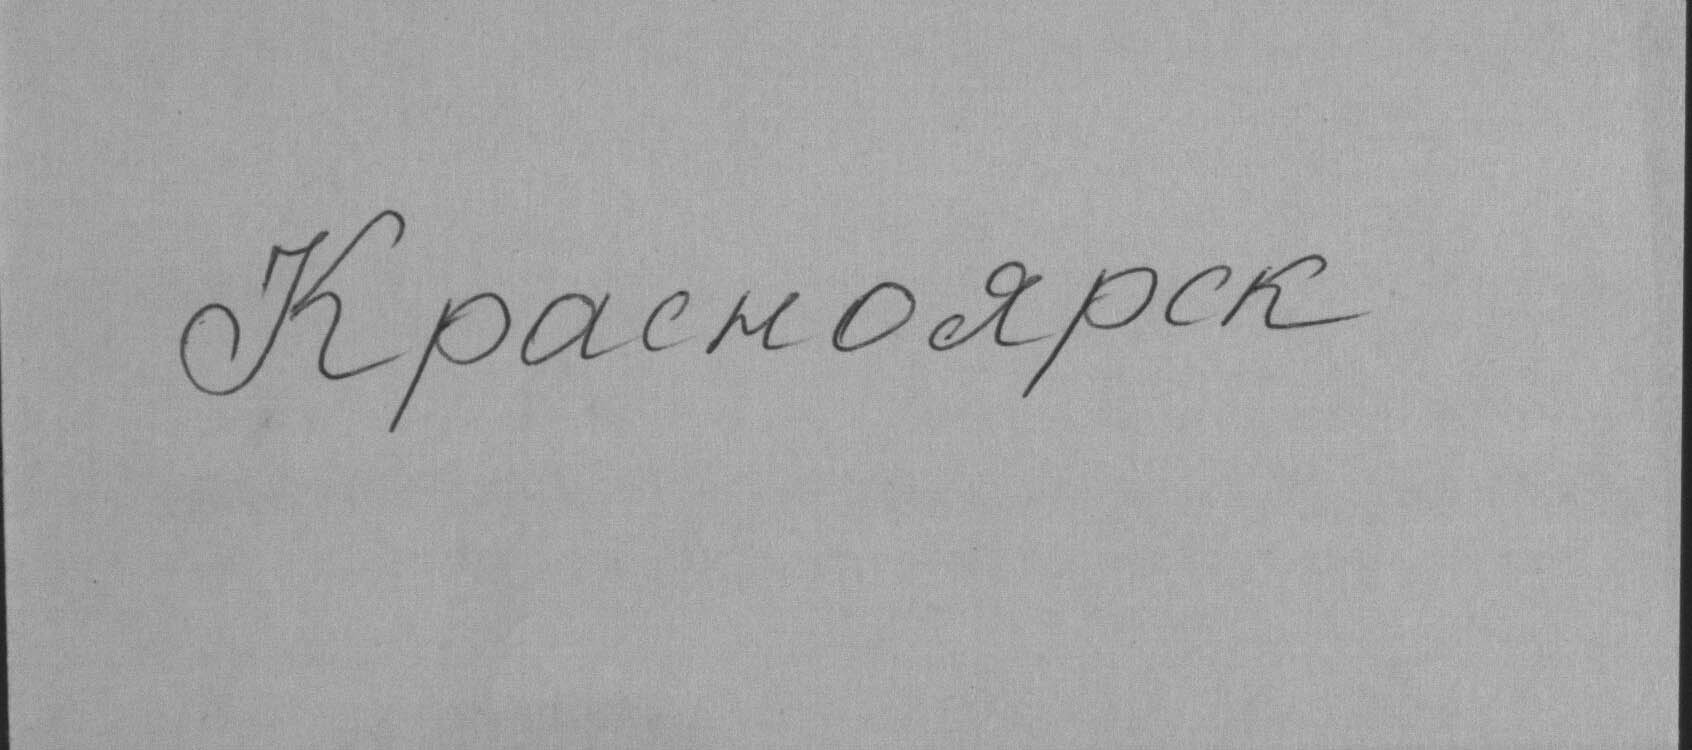 Красноярск